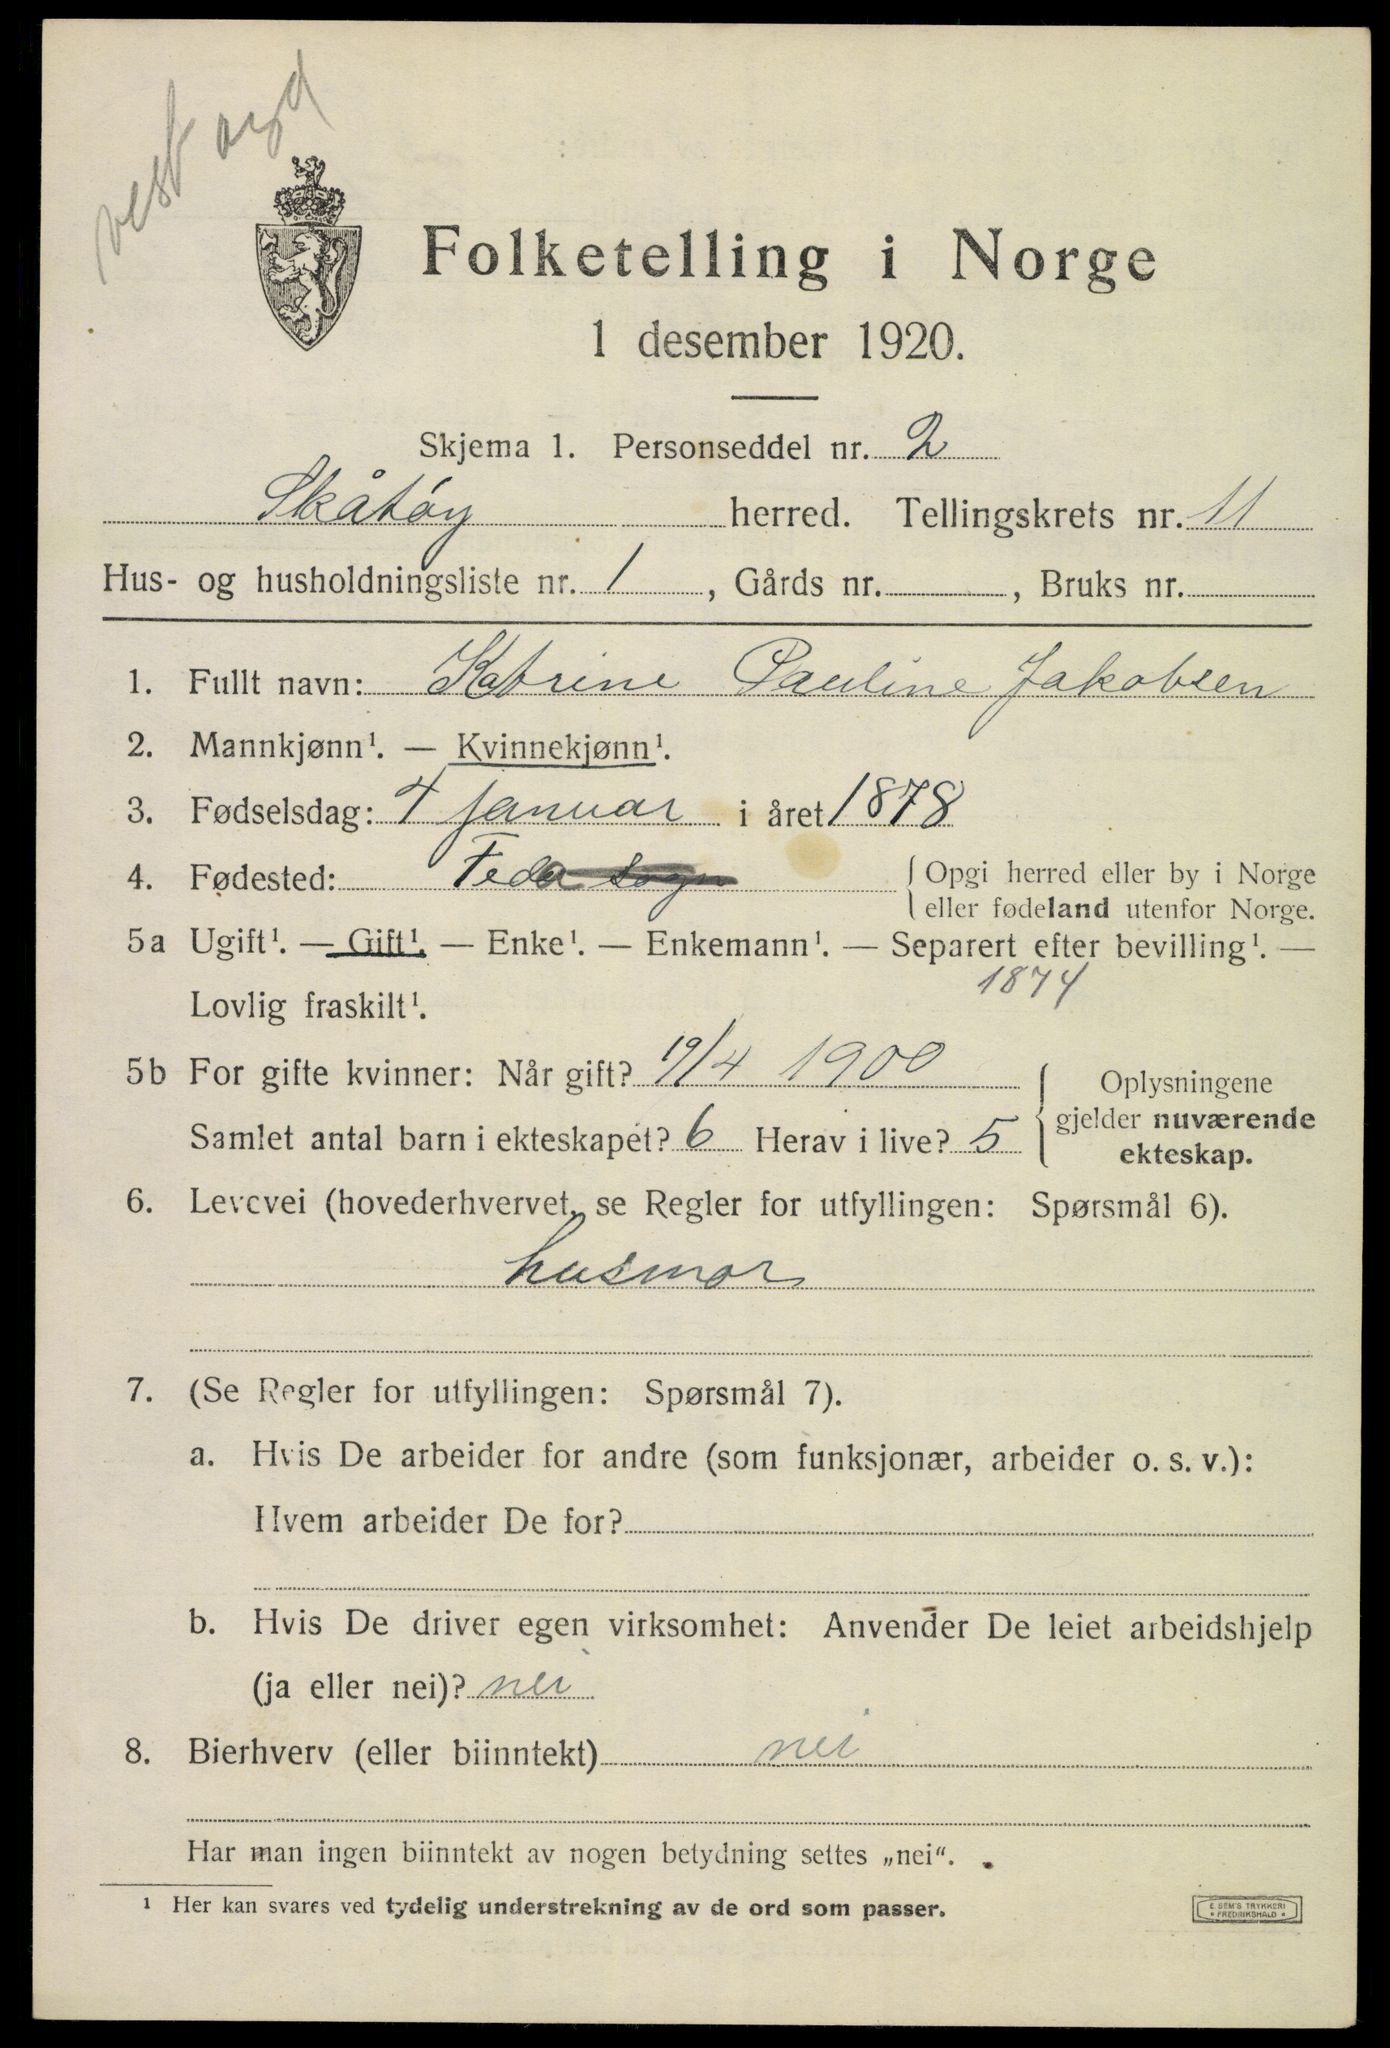 vest agd
Folketelling i Norge
1 desember 1920.
Skjema 1. Personseddel nr. 2
Skåtøy herred. Tellingskrets nr. 11
Hus- og husholdningsliste nr. 1, Gårds nr. , Bruks nr.
1. Fullt navn: Katrine Pauline Jakobsen
2. Mannkjønn¹. — Kvinnekjønn¹.
3. Fødselsdag: 4 januar i året 1878
4. Fødested: Feda sogn { Opgi herred eller by i Norge
eller fødeland utenfor Norge.
5a Ugift¹. — Gift¹. — Enke¹. — Enkemann¹. — Separert efter bevilling¹. —
1874
Lovlig fraskilt¹.
5b For gifte kvinner: Når gift? 19/4 1900 { Oplysningene
gjelder nuværende
ekteskap.
Samlet antal barn i ekteskapet? 6 Herav i live? 5
6. Levevei (hovederhvervet, se Regler for utfyllingen: Spørsmål 6).
husmor
7. (Se Regler for utfyllingen: Spørsmål 7).
a. Hvis De arbeider for andre (som funksjonær, arbeider o. s. v.):
Hvem arbeider De for?
b. Hvis De driver egen virksomhet: Anvender De leiet arbeidshjelp
(ja eller nei)? nei
8. Bierhverv (eller biinntekt) nei
Har man ingen biinntekt av nogen betydning settes „nei“.
¹ Her kan svares ved tydelig understrekning av de ord som passer.
E. SEM'S TRYKKERI
FREDRIKSHALD